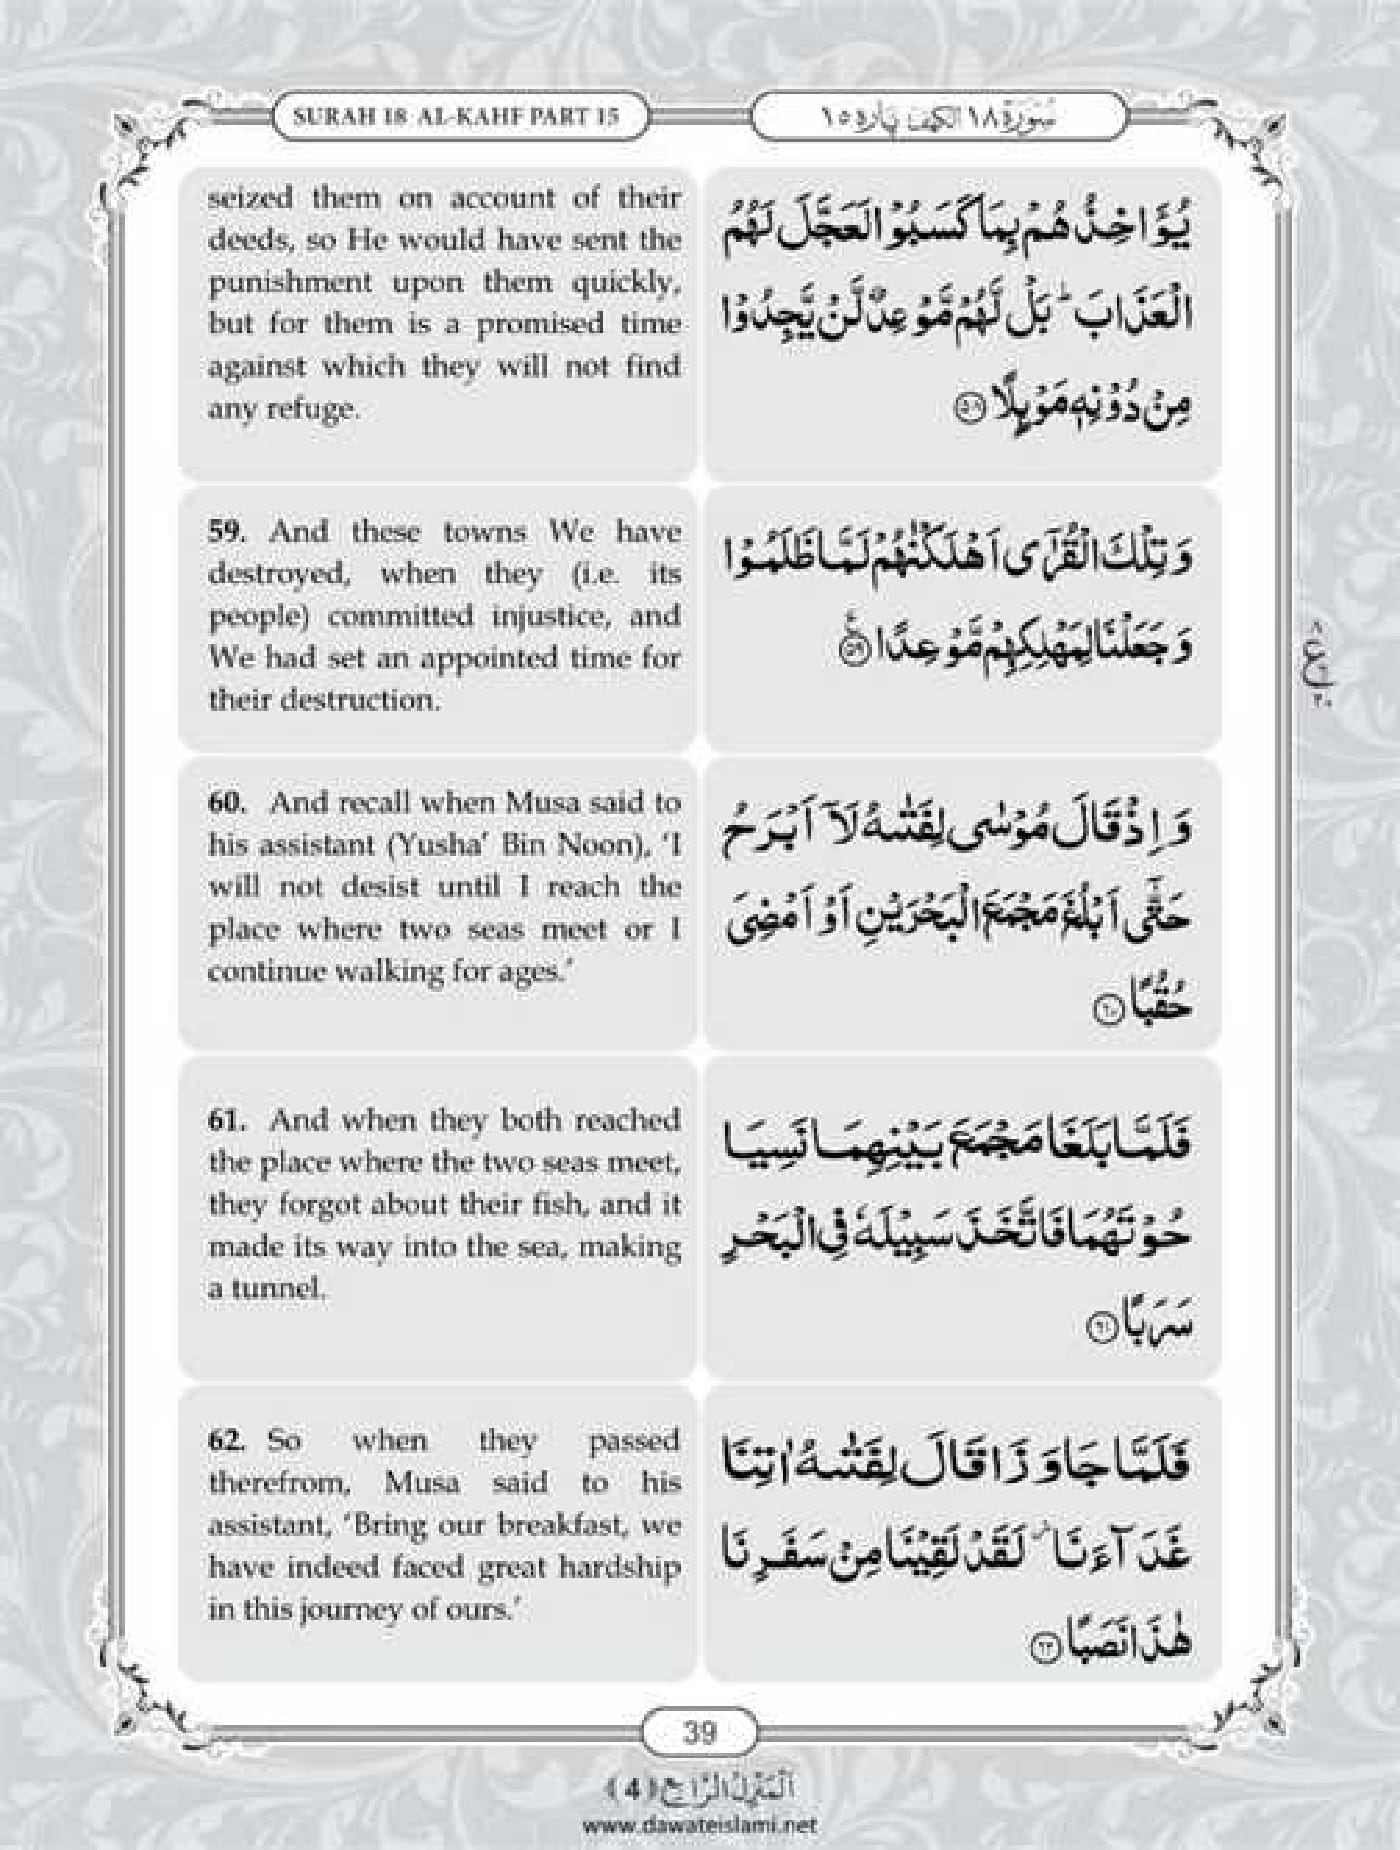 SURAH 18 AL-KAHF PART 15
سُوْرَةُ ١٨ الكهف پاره ١٥
seized them on account of their
deeds, so He would have sent the
punishment upon them quickly,
but for them is a promised time
against which they will not find
any refuge.
يُؤَاخِذُهُمْ بِمَا كَسَبُوْا لَعَجَّلَ لَهُمُ
الْعَذَابَ ؕ بَلْ لَّهُمْ مَّوْعِدٌ لَّنْ يَّجِدُوْا
مِنْ دُوْنِهٖ مَوْىِٕلًا ﴿۵۸﴾
59. And these towns We have
destroyed, when they (i.e. its
people) committed injustice, and
We had set an appointed time for
their destruction.
وَ تِلْكَ الْقُرٰۤى اَهْلَكْنٰهُمْ لَمَّا ظَلَمُوْا
وَ جَعَلْنَا لِمَهْلِكِهِمْ مَّوْعِدًا ﴿۵۹﴾
60. And recall when Musa said to
his assistant (Yusha’ Bin Noon), ‘I
will not desist until I reach the
place where two seas meet or I
continue walking for ages.’
وَ اِذْ قَالَ مُوْسٰى لِفَتٰىهُ لَاۤ اَبْرَحُ
حَتّٰۤى اَبْلُغَ مَجْمَعَ الْبَحْرَيْنِ اَوْ اَمْضِىَ
حُقُبًا ﴿۶۰﴾
61. And when they both reached
the place where the two seas meet,
they forgot about their fish, and it
made its way into the sea, making
a tunnel.
فَلَمَّا بَلَغَا مَجْمَعَ بَيْنِهِمَا نَسِيَا
حُوْتَهُمَا فَاتَّخَذَ سَبِيْلَهٗ فِى الْبَحْرِ
سَرَبًا ﴿۶۱﴾
62. So when they passed
therefrom, Musa said to his
assistant, ‘Bring our breakfast, we
have indeed faced great hardship
in this journey of ours.’
فَلَمَّا جَاوَزَا قَالَ لِفَتٰىهُ اٰتِنَا
غَدَآءَنَا ؗ لَقَدْ لَقِيْنَا مِنْ سَفَرِنَا
هٰذَا نَصَبًا ﴿۶۲﴾
39
اَلْمَنْزِلُ الرَّابِع (4)
www.dawateislami.net